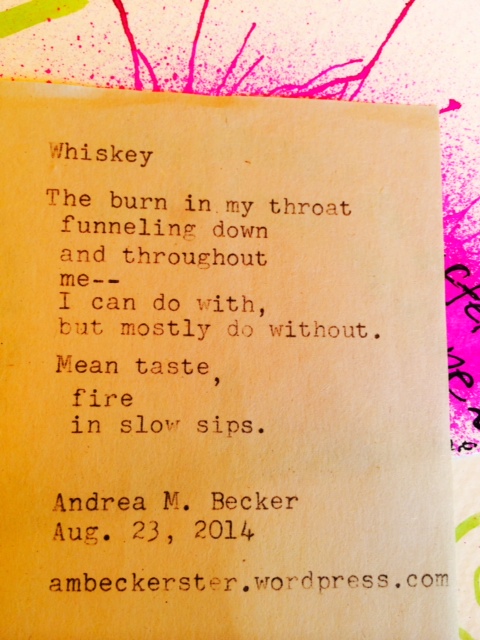 Whiskey
The burn in my throat
funneling down
and throughout
me--
I can do with,
but mostly do without.
Mean taste,
fire
in slow sips.
Andrea M. Becker
Aug. 23, 2014
ambeckerster.wordpress.com